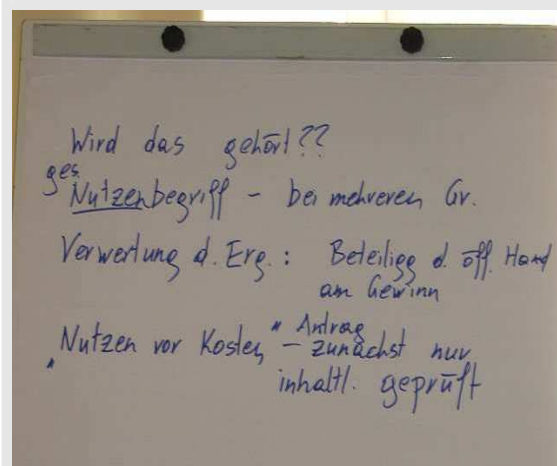 Wird das gehört??
ges.
Nutzenbegriff – bei mehreren Gr.
Verwertung d. Erg.: Beteiligg d. öff. Hand
am Gewinn
"Nutzen vor Kosten" – Antrag
zunächst nur
inhaltl. geprüft